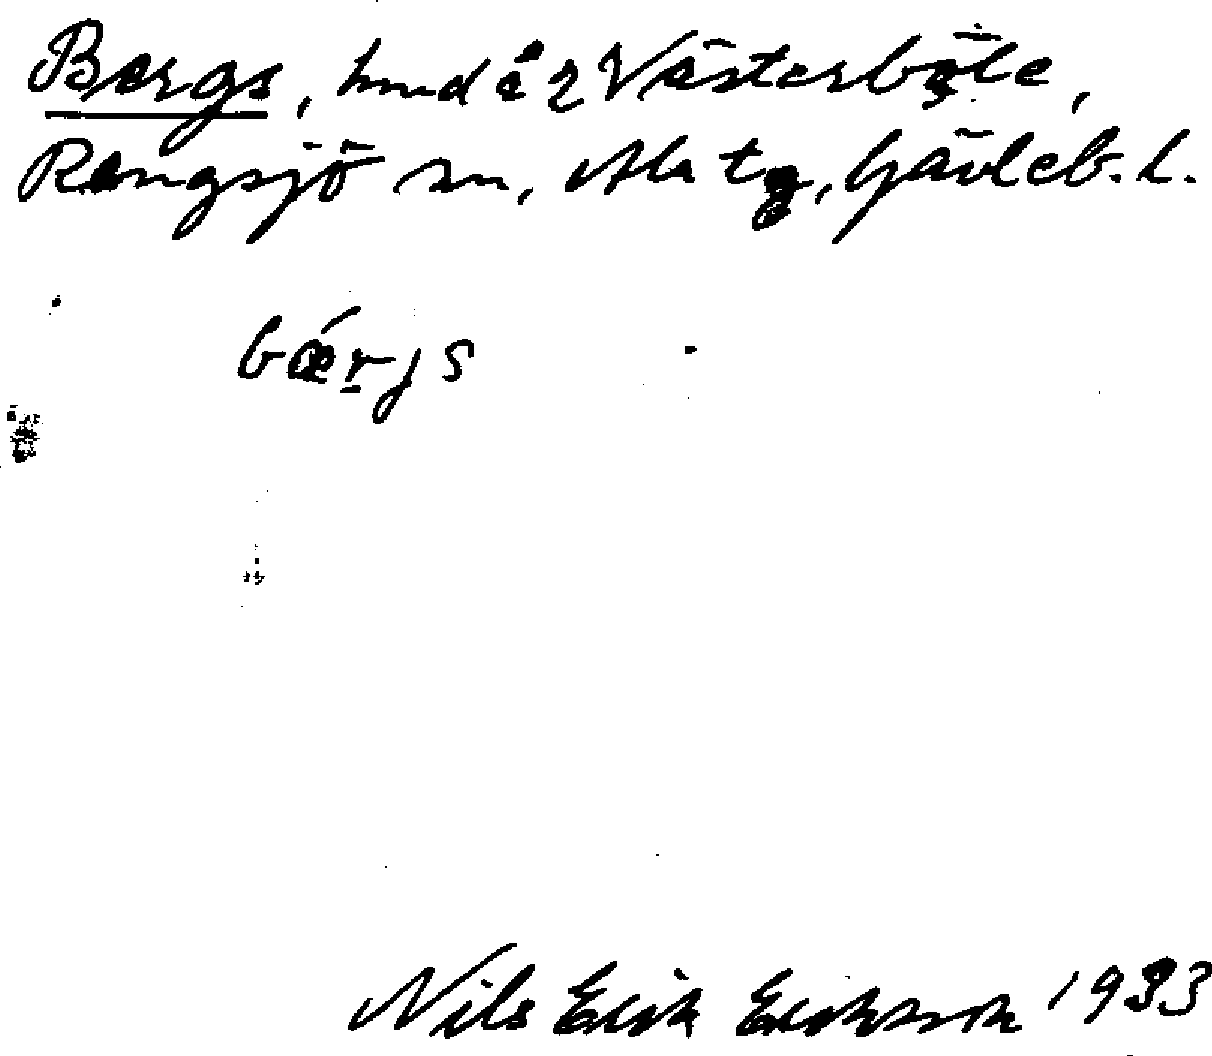 Bergs, hmd å 2 Västerböle,
Rengsjö sn, Ala tg, Gävleb. l.
bǽrjs
Nils Erik Eriksson 1933